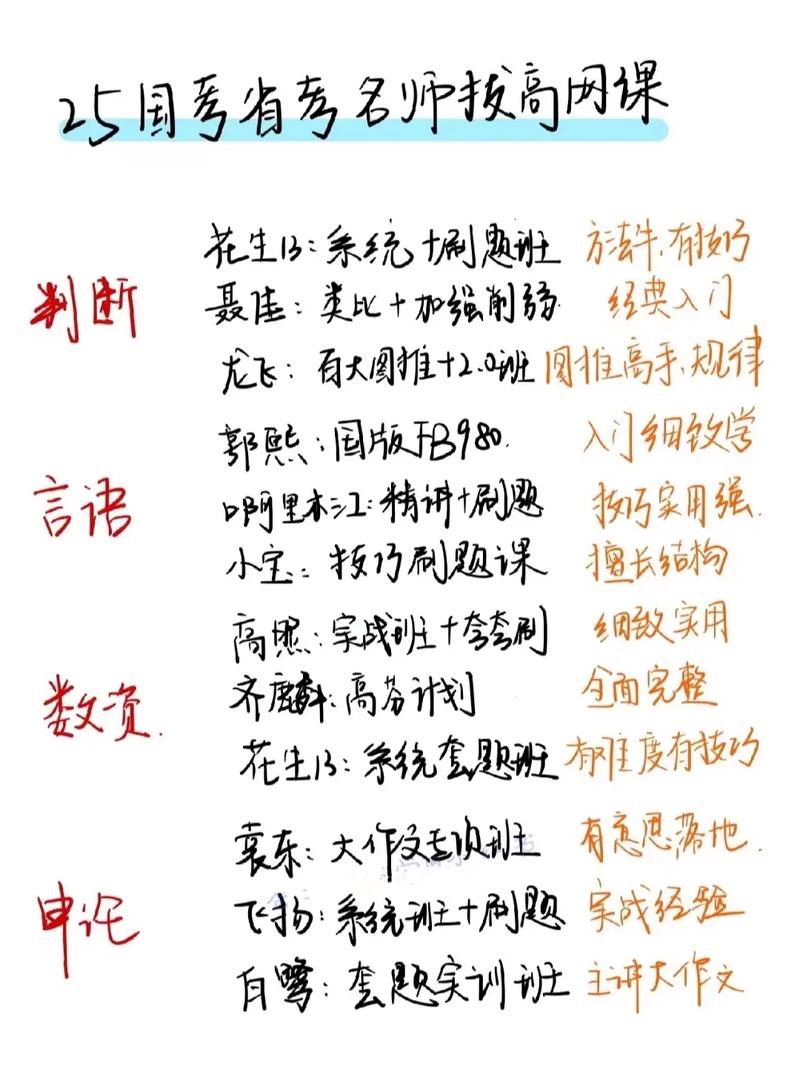 25国考省考名师拔高网课
判断
花生13：系统+刷题班 方法牛，有技巧
聂佳：类比+加强削弱 经典入门
龙飞：百大图推+2.0班 图推高手、规律
言语
郭熙：国版FB980. 入门细致学
啊里木江：精讲+刷题 技巧实用强.
小宝：技巧刷题课 擅长结构
数资.
高照：实战班+夸夸刷 细致实用
齐麟：高分计划 全面完整
花生13：系统套题班 有难度有技巧
申论
袁东：大作文专项班 有意思落地.
飞扬：系统班+刷题 实战经验
白鹭：套题实训班 主讲大作文